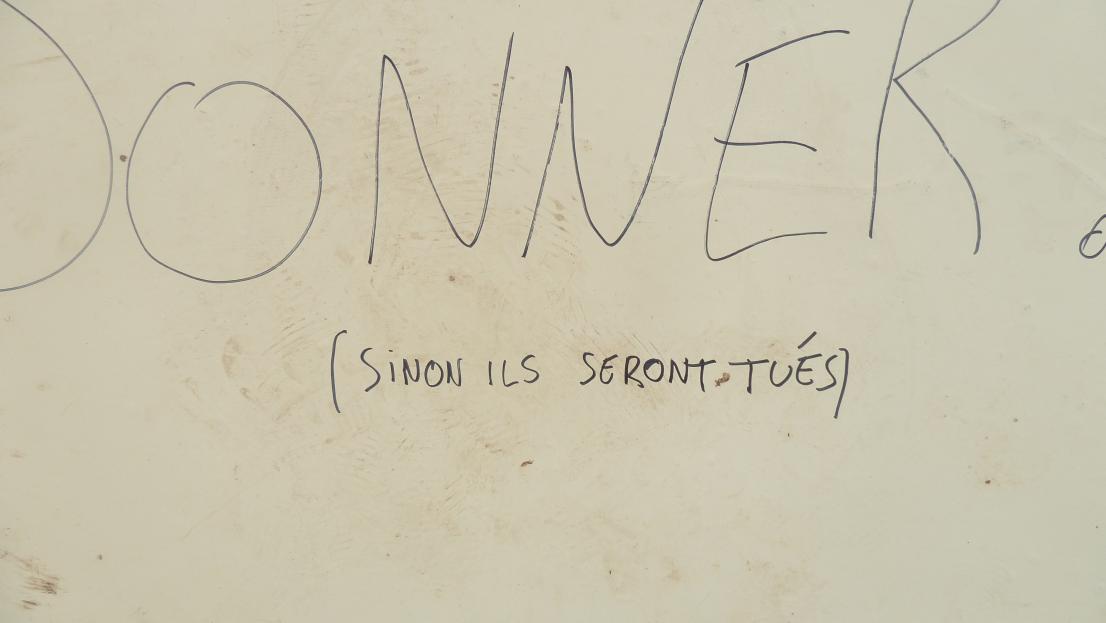 DONNER
(SiNON ILS SERONT TUÉS)